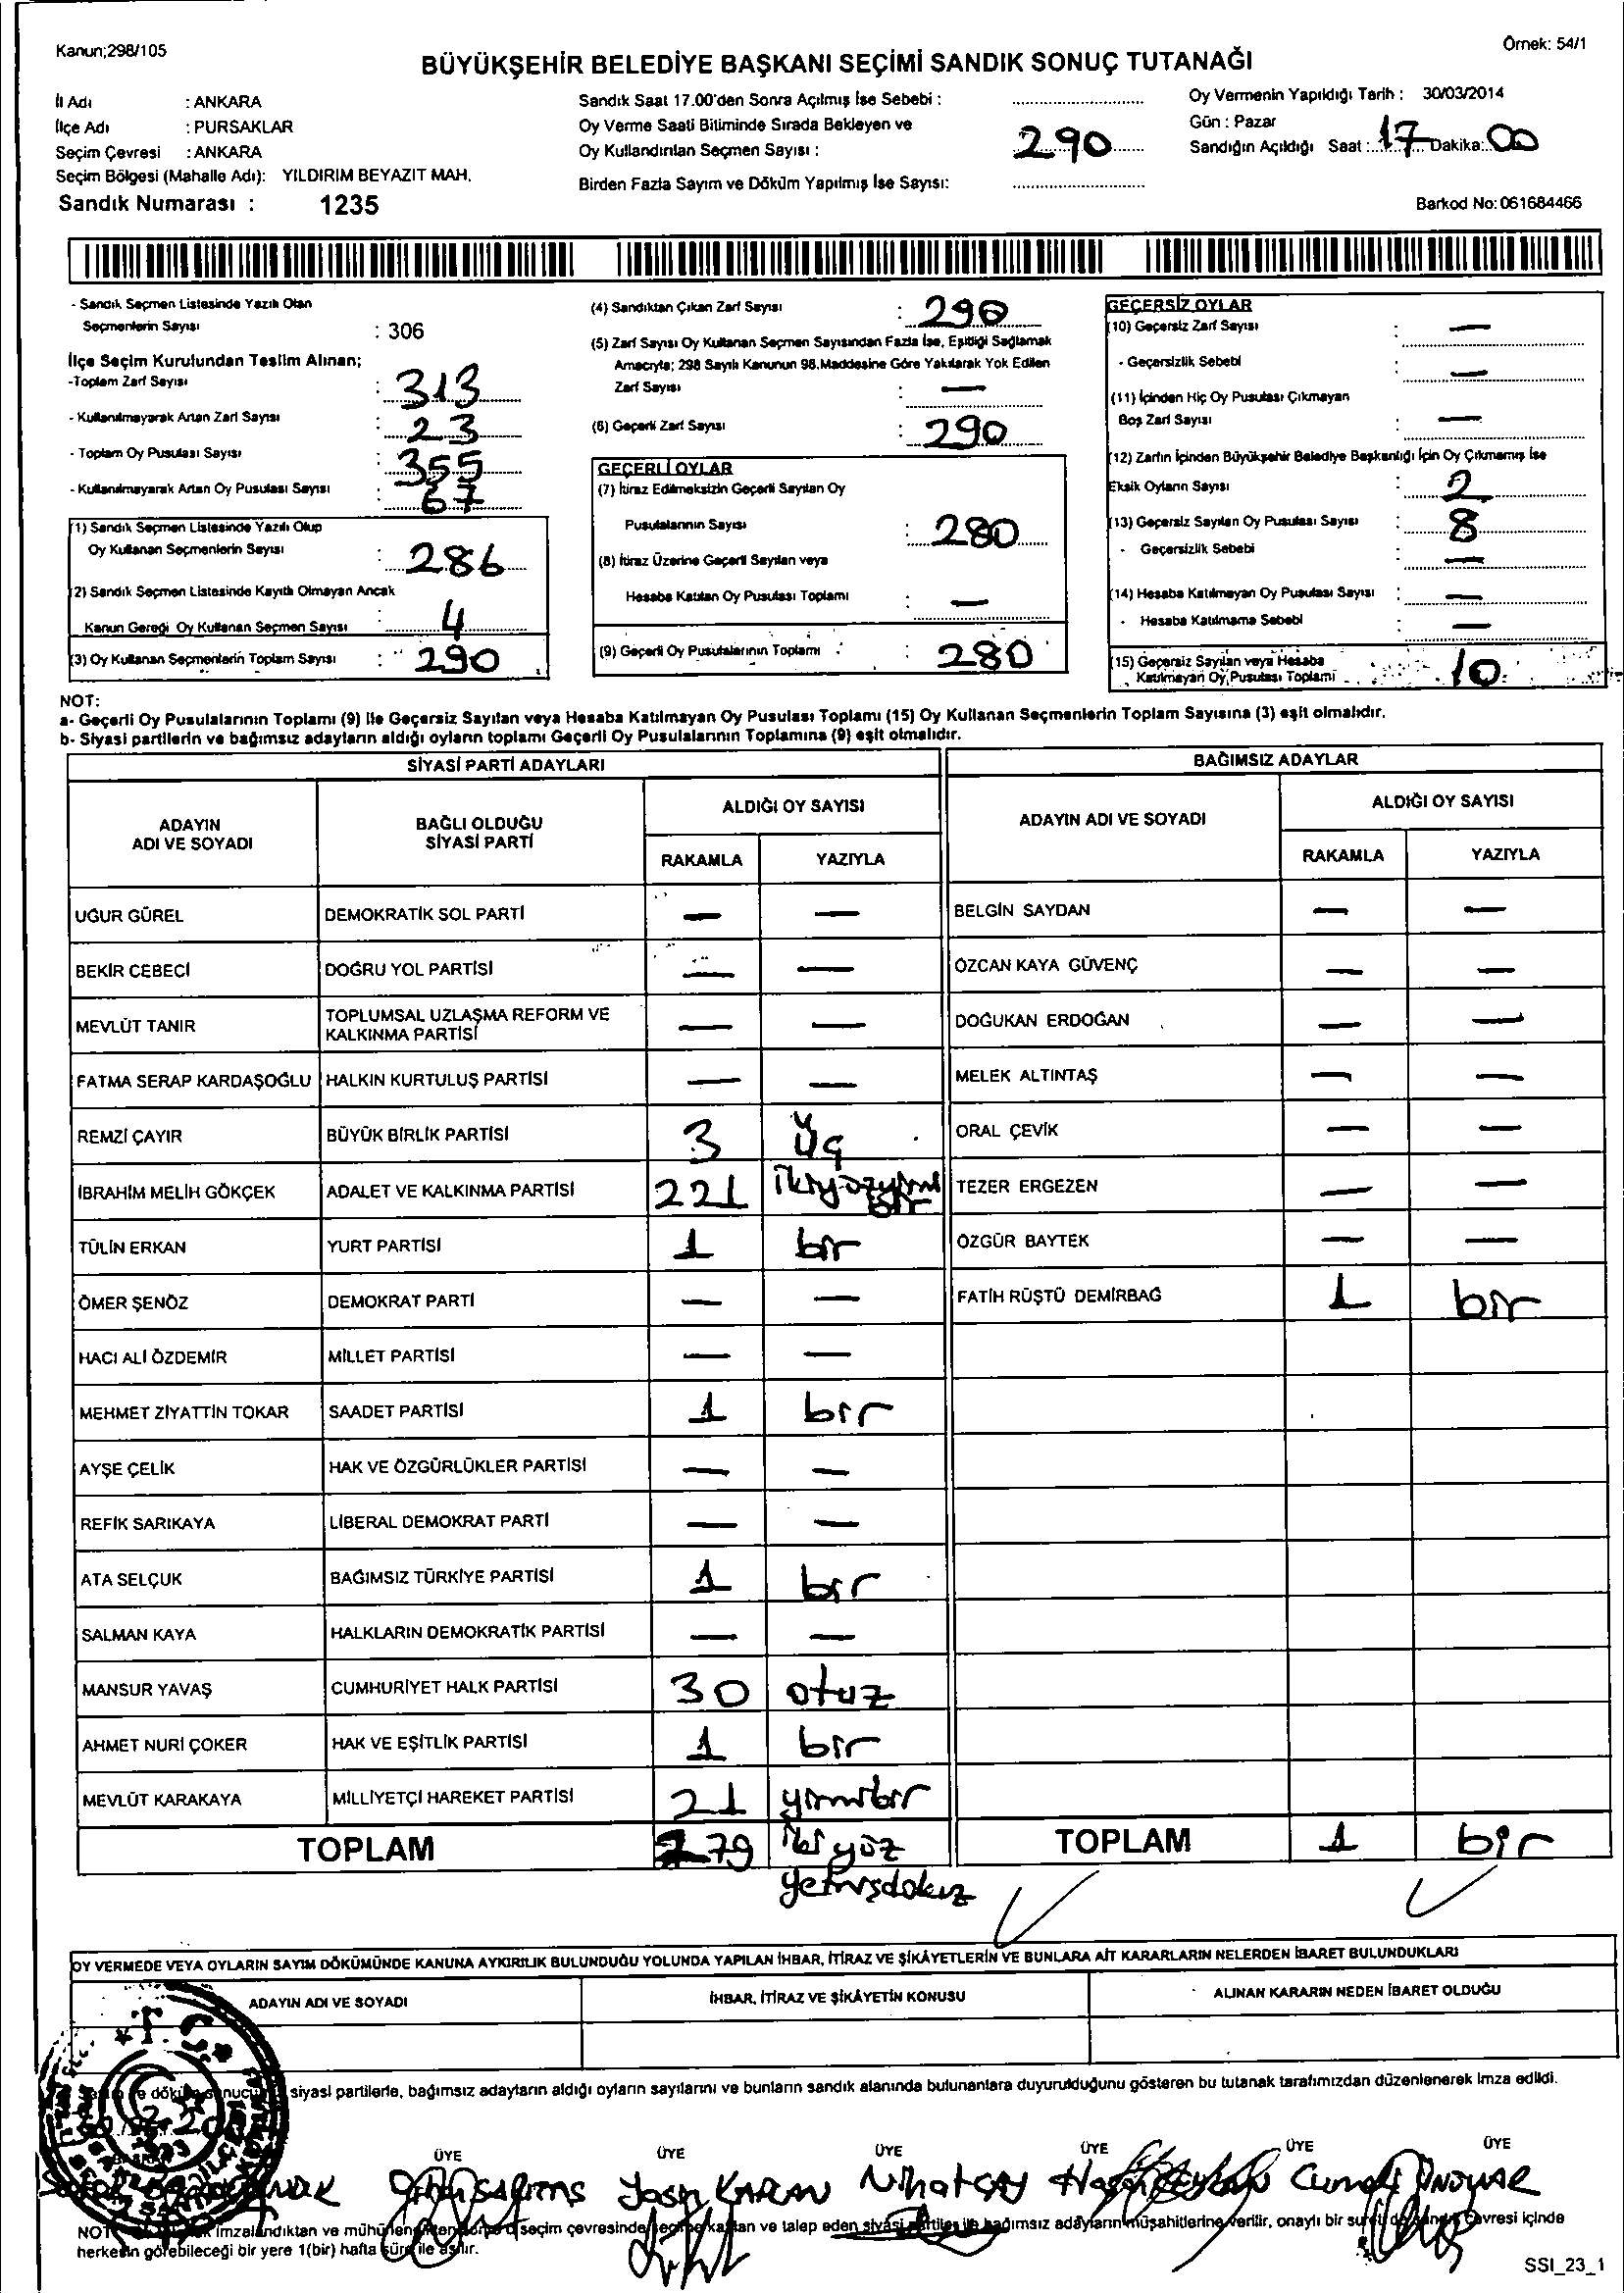 Kanun;298/105
Örnek: 54/1
BÜYÜKŞEHİR BELEDİYE BAŞKANI SEÇİMİ SANDIK SONUÇ TUTANAĞI
İl Adı : ANKARA
İlçe Adı : PURSAKLAR
Seçim Çevresi : ANKARA
Seçim Bölgesi (Mahalle Adı): YILDIRIM BEYAZIT MAH.
Sandık Numarası : 1235
Sandık Saat 17.00'den Sonra Açılmış İse Sebebi :
Oy Verme Saati Bitiminde Sırada Bekleyen ve
Oy Kullandırılan Seçmen Sayısı : 290
Birden Fazla Sayım ve Döküm Yapılmış İse Sayısı:
Oy Vermenin Yapıldığı Tarih : 30/03/2014
Gün : Pazar
Sandığın Açıldığı Saat : 17 Dakika: 00
Barkod No: 061684466
- Sandık Seçmen Listesinde Yazılı Olan
Seçmenlerin Sayısı : 306
İlçe Seçim Kurulundan Teslim Alınan;
-Toplam Zarf Sayısı : 313
- Kullanılmayarak Artan Zarf Sayısı : 23
- Toplam Oy Pusulası Sayısı : 355
- Kullanılmayarak Artan Oy Pusulası Sayısı : 67
(1) Sandık Seçmen Listesinde Yazılı Olup
Oy Kullanan Seçmenlerin Sayısı : 286
(2) Sandık Seçmen Listesinde Kayıtlı Olmayan Ancak
Kanun Gereği Oy Kullanan Seçmen Sayısı : 4
(3) Oy Kullanan Seçmenlerin Toplam Sayısı : 290
(4) Sandıktan Çıkan Zarf Sayısı : 290
(5) Zarf Sayısı Oy Kullanan Seçmen Sayısından Fazla İse, Eşitliği Sağlamak
Amacıyla; 298 Sayılı Kanunun 98.Maddesine Göre Yakılarak Yok Edilen
Zarf Sayısı : —
(6) Geçerli Zarf Sayısı : 290
GEÇERLİ OYLAR
(7) İtiraz Edilmeksizin Geçerli Sayılan Oy
Pusulalarının Sayısı : 280
(8) İtiraz Üzerine Geçerli Sayılan veya
Hesaba Katılan Oy Pusulası Toplamı : —
(9) Geçerli Oy Pusulalarının Toplamı : 280
GEÇERSİZ OYLAR
(10) Geçersiz Zarf Sayısı : —
- Geçersizlik Sebebi : —
(11) İçinden Hiç Oy Pusulası Çıkmayan
Boş Zarf Sayısı : —
(12) Zarfın İçinden Büyükşehir Belediye Başkanlığı İçin Oy Çıkmamış İse
Eksik Oyların Sayısı : 2
(13) Geçersiz Sayılan Oy Pusulası Sayısı : 8
- Geçersizlik Sebebi : —
(14) Hesaba Katılmayan Oy Pusulası Sayısı : —
- Hesaba Katılmama Sebebi : —
(15) Geçersiz Sayılan veya Hesaba
Katılmayan Oy Pusulası Toplamı 10
NOT:
a- Geçerli Oy Pusulalarının Toplamı (9) ile Geçersiz Sayılan veya Hesaba Katılmayan Oy Pusulası Toplamı (15) Oy Kullanan Seçmenlerin Toplam Sayısına (3) eşit olmalıdır.
b- Siyasi partilerin ve bağımsız adayların aldığı oyların toplamı Geçerli Oy Pusulalarının Toplamına (9) eşit olmalıdır.
SİYASİ PARTİ ADAYLARI
ADAYIN ADI VE SOYADI
BAĞLI OLDUĞU SİYASİ PARTİ
ALDIĞI OY SAYISI
RAKAMLA YAZIYLA
UĞUR GÜREL DEMOKRATİK SOL PARTİ — —
BEKİR CEBECİ DOĞRU YOL PARTİSİ — —
MEVLÜT TANIR TOPLUMSAL UZLAŞMA REFORM VE KALKINMA PARTİSİ — —
FATMA SERAP KARDAŞOĞLU HALKIN KURTULUŞ PARTİSİ — —
REMZİ ÇAYIR BÜYÜK BİRLİK PARTİSİ 3 üç
İBRAHİM MELİH GÖKÇEK ADALET VE KALKINMA PARTİSİ 221 ikiyüzyirmi bir
TÜLİN ERKAN YURT PARTİSİ 1 bir
ÖMER ŞENÖZ DEMOKRAT PARTİ — —
HACI ALİ ÖZDEMİR MİLLET PARTİSİ — —
MEHMET ZİYATTİN TOKAR SAADET PARTİSİ 1 bir
AYŞE ÇELİK HAK VE ÖZGÜRLÜKLER PARTİSİ — —
REFİK SARIKAYA LİBERAL DEMOKRAT PARTİ — —
ATA SELÇUK BAĞIMSIZ TÜRKİYE PARTİSİ 1 bir
SALMAN KAYA HALKLARIN DEMOKRATİK PARTİSİ — —
MANSUR YAVAŞ CUMHURİYET HALK PARTİSİ 30 otuz
AHMET NURİ ÇOKER HAK VE EŞİTLİK PARTİSİ 1 bir
MEVLÜT KARAKAYA MİLLİYETÇİ HAREKET PARTİSİ 21 yirmibir
TOPLAM 279 iki yüz
yetmişdokuz
BAĞIMSIZ ADAYLAR
ADAYIN ADI VE SOYADI
ALDIĞI OY SAYISI
RAKAMLA YAZIYLA
BELGİN SAYDAN — —
ÖZCAN KAYA GÜVENÇ — —
DOĞUKAN ERDOĞAN — —
MELEK ALTINTAŞ — —
ORAL ÇEVİK — —
TEZER ERGEZEN — —
ÖZGÜR BAYTEK — —
FATİH RÜŞTÜ DEMİRBAĞ 1 bir
TOPLAM 1 bir
OY VERMEDE VEYA OYLARIN SAYIM DÖKÜMÜNDE KANUNA AYKIRILIK BULUNDUĞU YOLUNDA YAPILAN İHBAR, İTİRAZ VE ŞİKÂYETLERİN VE BUNLARA AİT KARARLARIN NELERDEN İBARET BULUNDUKLARI
ADAYIN ADI VE SOYADI
İHBAR, İTİRAZ VE ŞİKÂYETİN KONUSU
ALINAN KARARIN NEDEN İBARET OLDUĞU
T.C.
siyasi partilerle, bağımsız adayların aldığı oyların sayılarını ve bunların sandık alanında bulunanlara duyurulduğunu gösteren bu tutanak tarafımızdan düzenlenerek imza edildi.
ÜYE ÜYE ÜYE ÜYE ÜYE ÜYE
Yasin KAPLAN Nihat ÇAY
NOT imzalandıktan ve seçim çevresinde ve talep eden siyasi partiler ile bağımsız adayların müşahitlerine verilir, onaylı bir çevresi içinde
herkesin görebileceği bir yere 1(bir) hafta süre ile asılır.
SSI_23_1